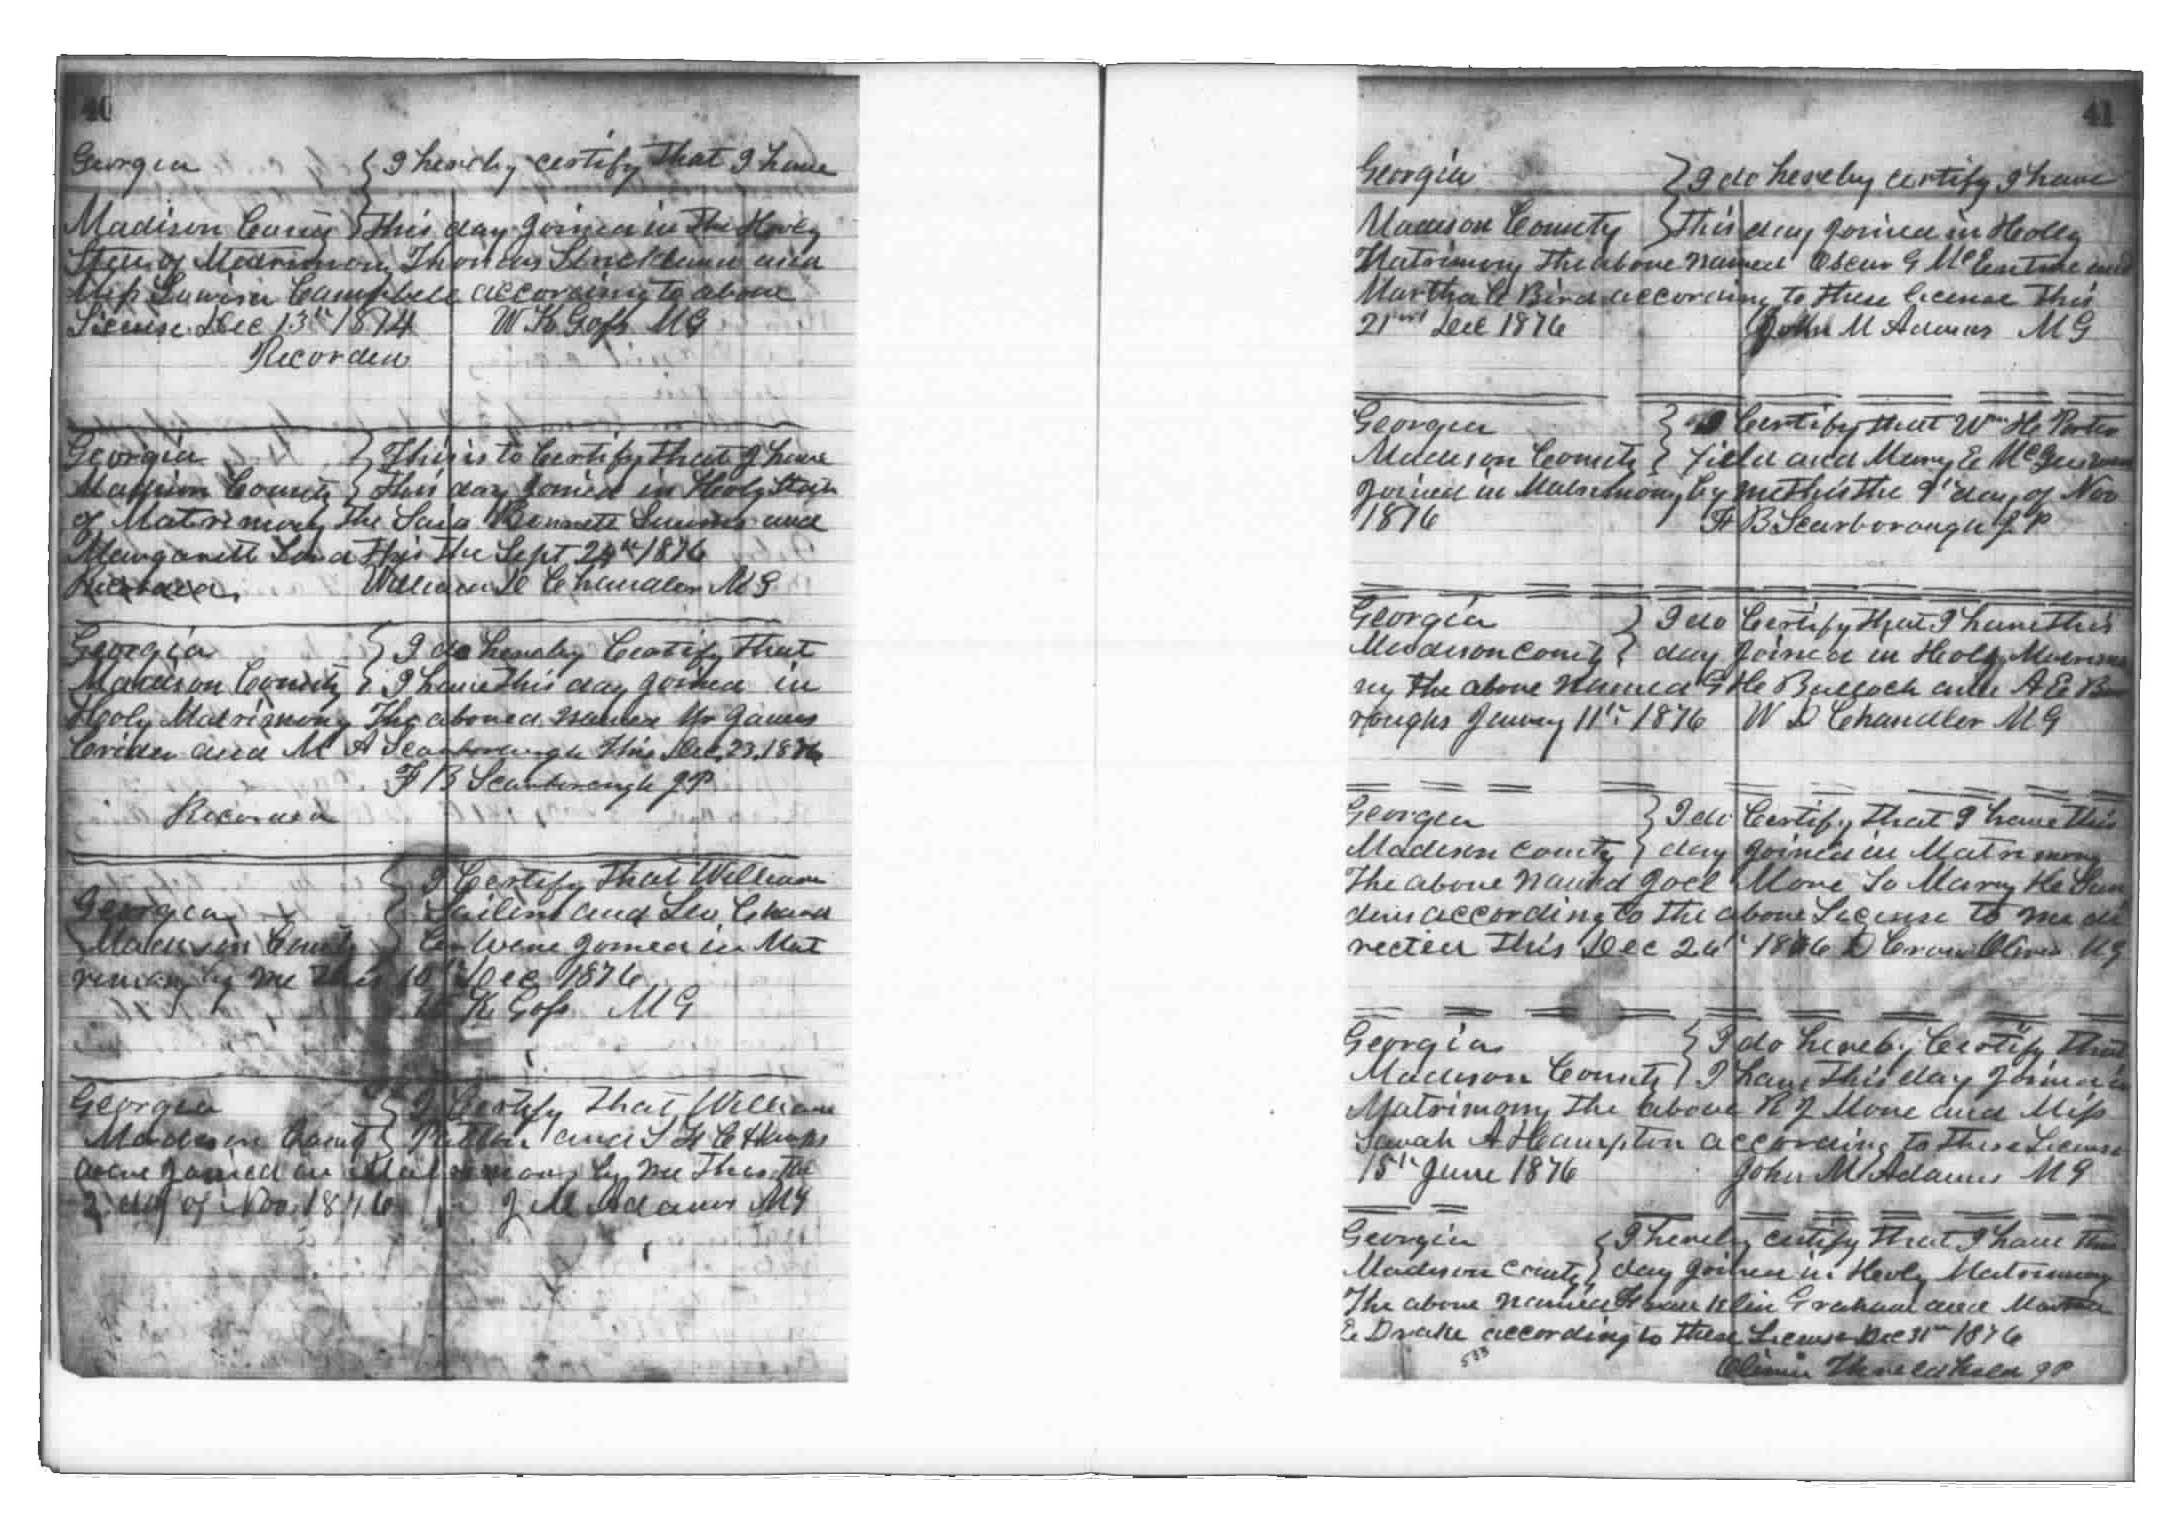 40
Georgia } I hereby certify that I have
Madison County } this day joined in the Holy
State of Matrimony Thomas Strickland and
Miss Louisa Campbell according to above
License Dec 13th 1874 W K Goss M G
Recorded
Georgia } This is to Certify that I have
Madison County } this day joined in Holy State
of Matrimony the Said Bennett and
Margarett this the Sept 24th 1876
Recorded William D Chandler M G
Georgia } I do hereby Certify that
Madison County } I have this day joined in
Holy Matrimony The above named Mr James
Crider and M A Scarborough this Dec 23, 1876
F B Scarborough J P
Recorded
} I Certify that William
Georgia } and
Madison County } were joined in Mat
rimony by me this 10th Dec 1876
W K Goss M G
Georgia } I Certify that William
Madison County } and
were joined in Matrimony by me this the
2 day of Nov 1876 J M Adams M G
41
Georgia } I do hereby certify I have
Madison County } this day joined in Holy
Matrimony the above named Oscar G McEntire and
Martha C Bird according to these license this
21st Dec 1876 John M Adams M G
Georgia } I Certify that Wm H Porter
Madison County } field and Mary E
joined in Matrimony by me this the 9th day of Nov
1876 F B Scarborough J P
Georgia } I do Certify that I have this
Madison County } day joined in Holy Matrimo
ny the above named G H Bullock and A E Bur
roughs January 11th 1876 W D Chandler M G
Georgia } I do Certify that I have this
Madison County } day joined in Matrimony
the above named Joel Mone to Mary H San
ders according to the above License to me di
rected this Dec 26th 1876 D Crow Oliver M G
Georgia } I do hereby Certify that
Madison County } I have this day joined in
Matrimony the above R J Mone and Miss
Sarah A Hampton according to these License
15th June 1876 John M Adams M G
Georgia } I hereby certify that I have this
Madison County } day joined in Holy Matrimony
The above named Franklin Graham and Martha
E Drake according to these License Dec 31st 1876
533
J P